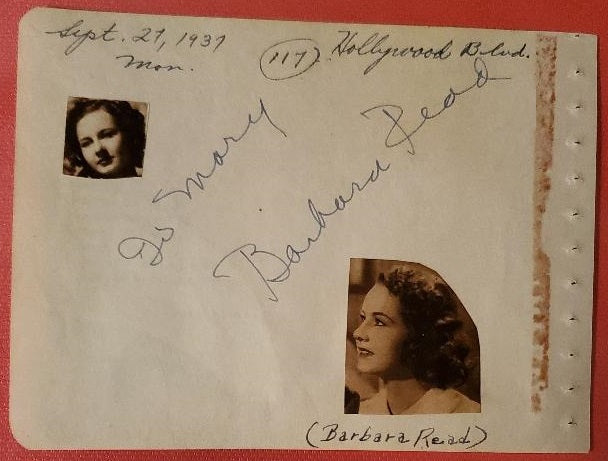 Sept. 27, 1937
Mon.
117
Hollywood Blvd.
To Mary
Barbara Read
(Barbara Read)